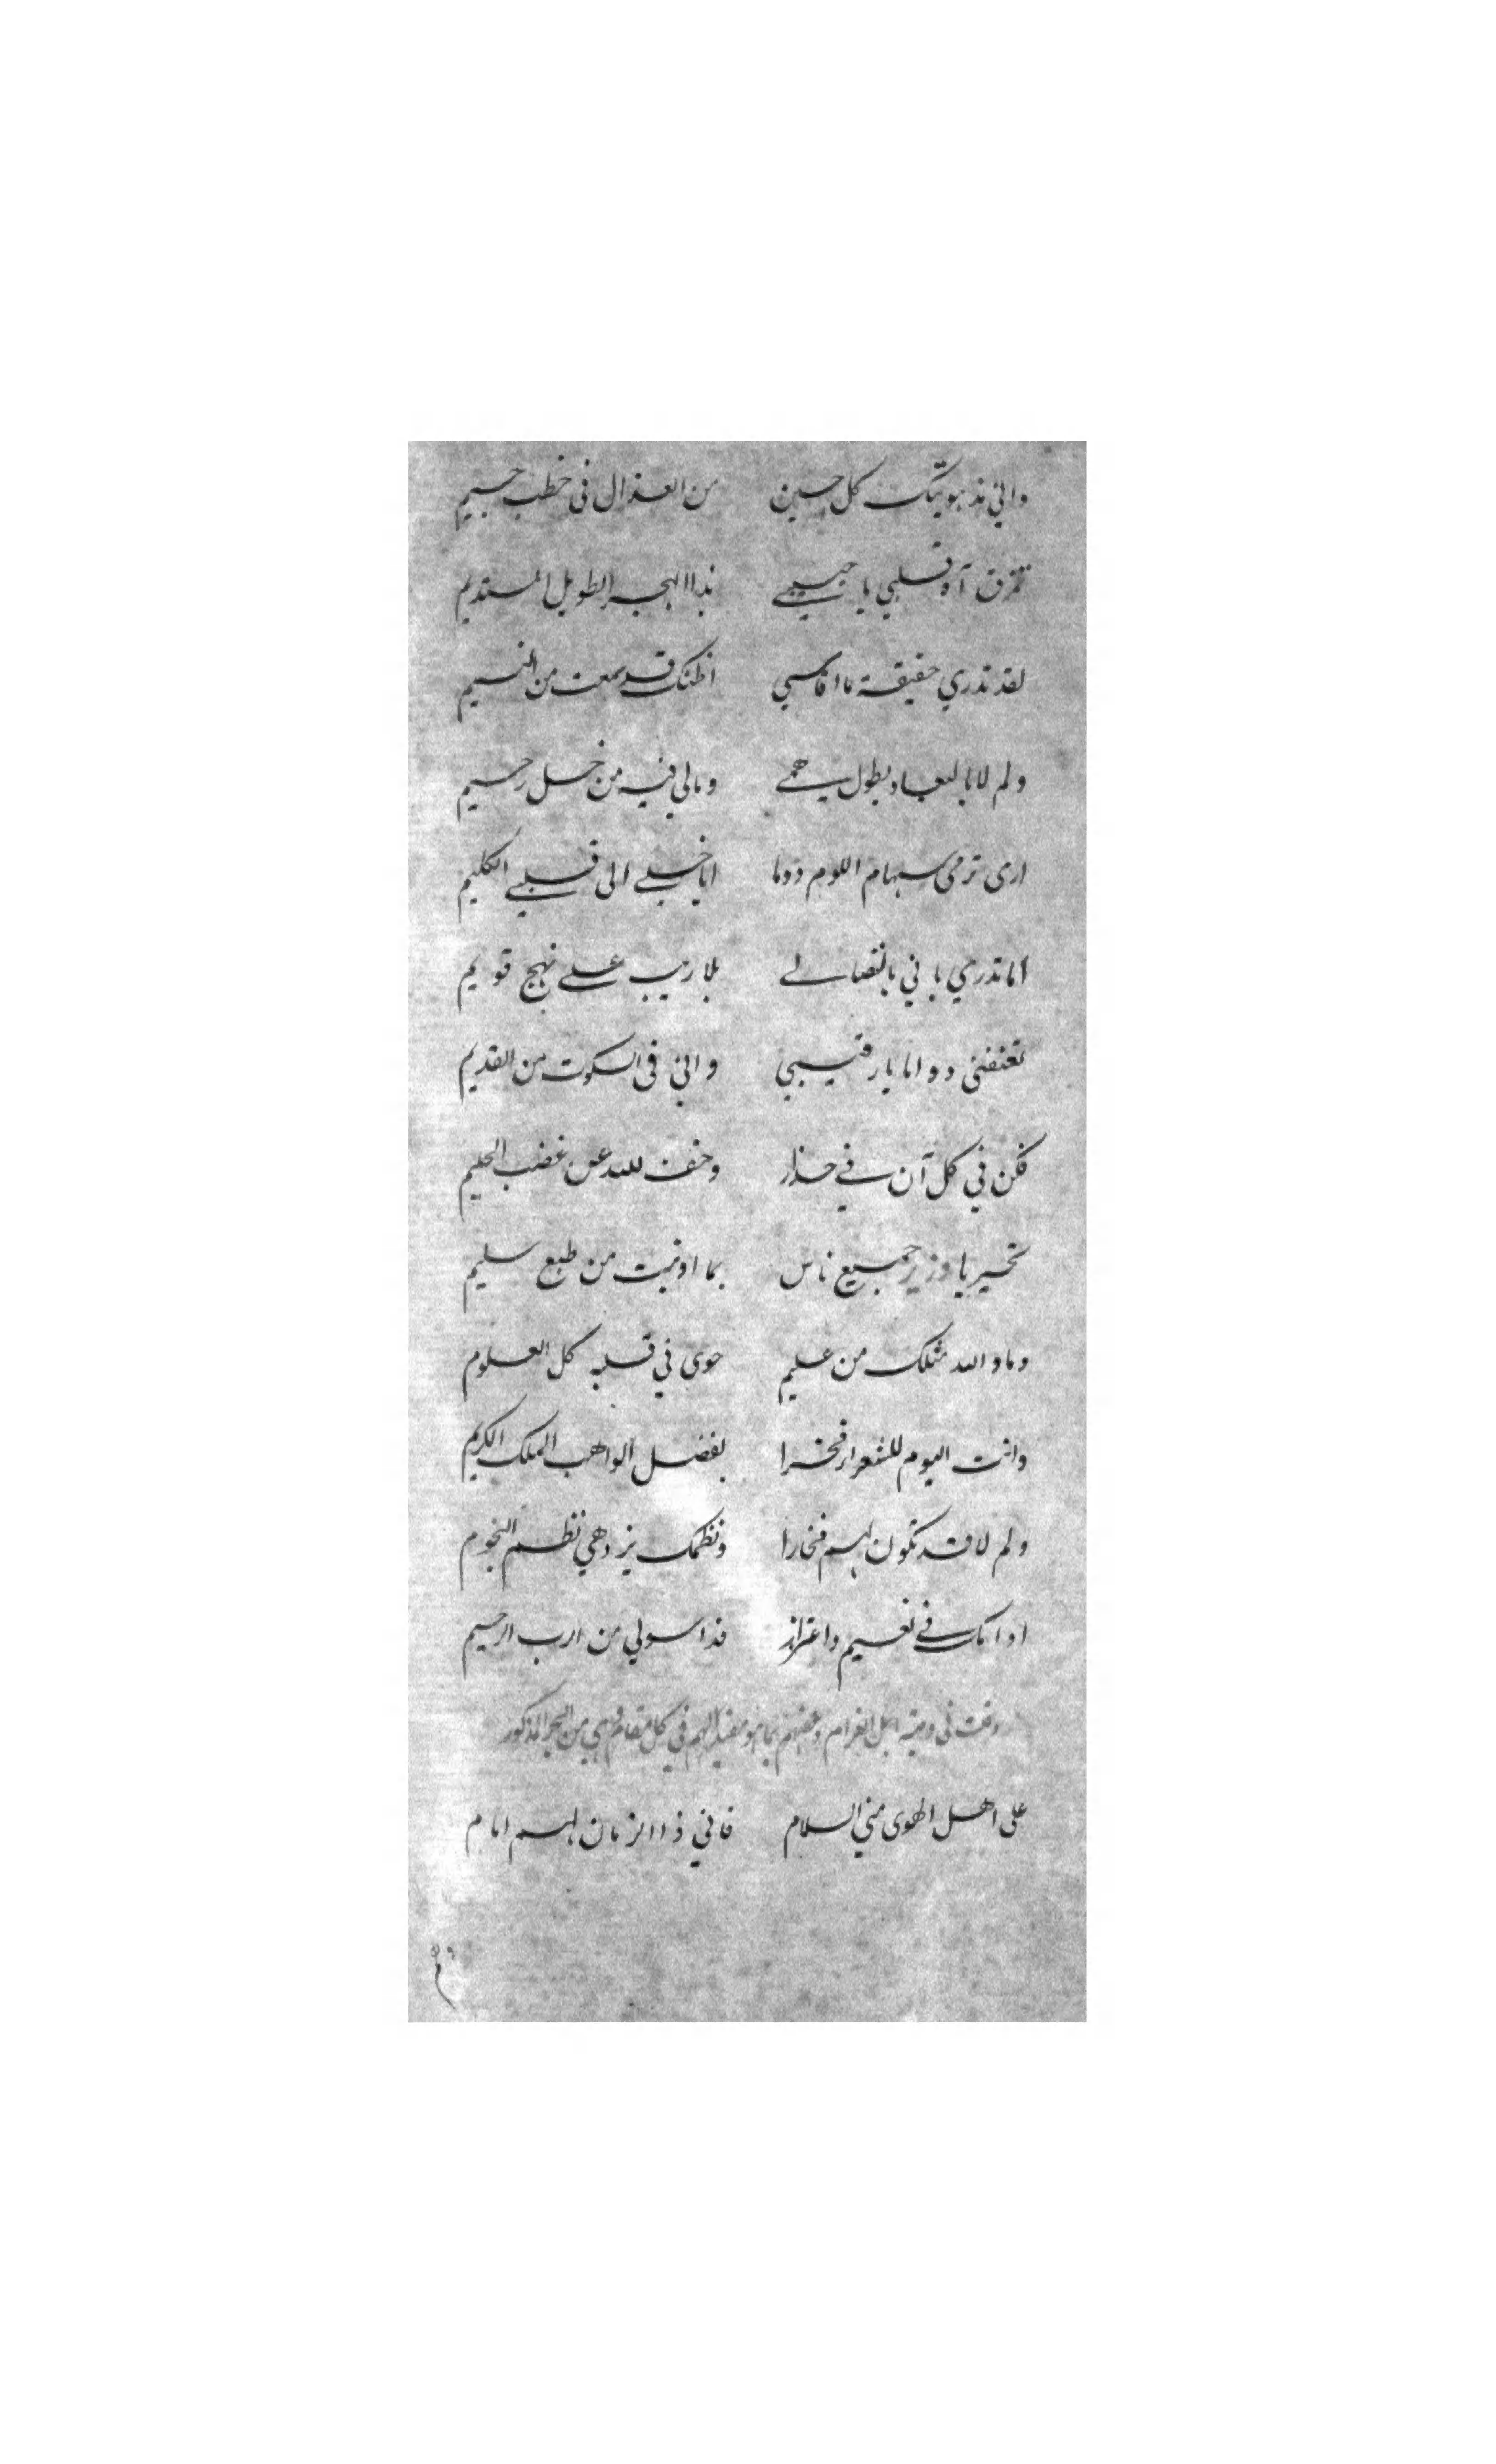 واني مذ هويتك كل حين من العذال في خطب جسيم
تمزق آه قلبي يا حبيبي بذا الهجر الطويل المستديم
لقد تدري حقيقة ما اقاسي اظنك قد سمعت من النسيم
ولم لا بالبعاد يطول همي ومالي فيه من خل رحيم
ارى ترمى سهام اللوم دوما اياخلي الى قلبي الكليم
اما تدري باني بانتصالي بلا ريب على نهج قويم
تعنفني دواما يا رقيبي واني في السكوت من القديم
فكن في كل آن في حذار وخف لله عن غضب الحليم
تحير يا وزير جميع ناس بما اوتيت من طبع سليم
وما والله مثلك من عليم حوى في قلبه كل العلوم
وانت اليوم للشعراء فخرا بفضل الواهب الملك الكريم
ولم لا قد تكون لهم فخارا ونظمك يزدهي نظم النجوم
ادامك في نعيم واعتزاز فذا سولي من الرب الرحيم
وقلت في وصية اهل الغرام وعظتهم بما هو مفيد لهم في كل مقام وهي من البحر المذكور
على اهل الهوى مني السلام فاني ذا الزمان لهم امام